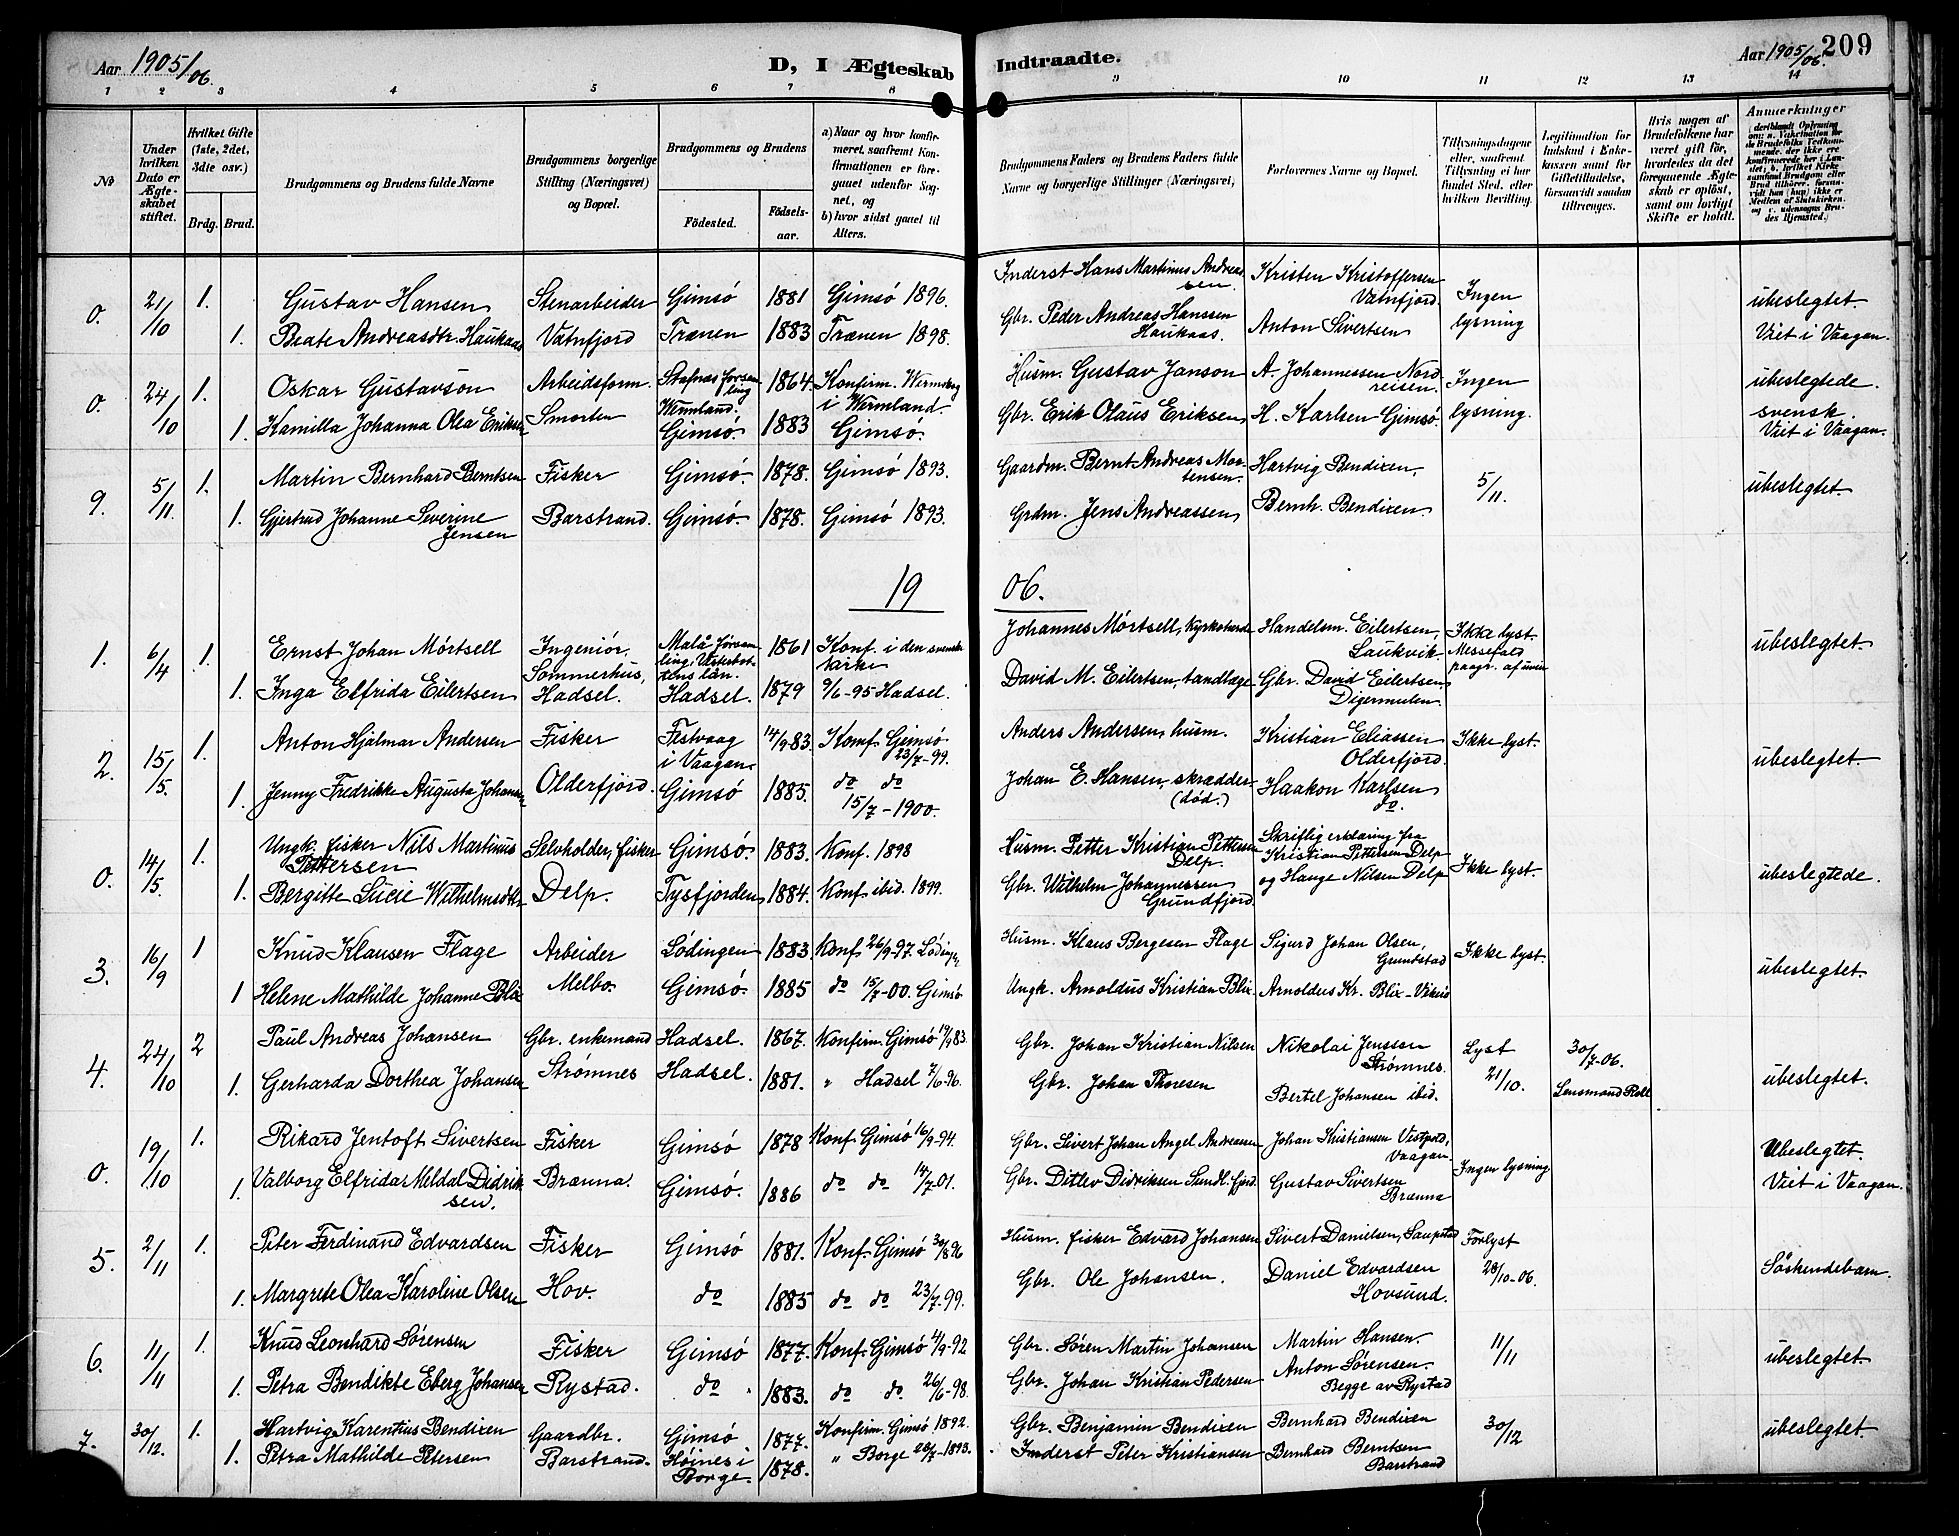 Aar 1905/06.
D, I Ægteskab Indtraadte.
Aar 1905/06. 209
1 2 3 4 5 6 7 8 9 10 11 12 13 14
No
Under hvilken Dato er Ægteskabet stiftet.
Hvilket Gifte (1ste, 2det, 3die osv.)
Brdg. Brud.
Brudgommens og Brudens fulde Navne
Brudgommens borgerlige Stilling (Næringsvei) og Bopæl.
Brudgommens og Brudens
Fødested.
Fødselsaar.
a) Naar og hvor konfirmeret, saafremt Konfirmationen er foregaaet udenfor Sognet, og
b) hvor sidst gaaet til Alters.
Brudgommens Faders og Brudens Faders fulde Navne og borgerlige Stillinger (Næringsvei)
Forlovernes Navne og Bopæl.
Tillysningsdagene eller, saafremt Tillysning ei har fundet Sted, efter hvilken Bevilling.
Legitimation for Indskud i Enkekassen samt for Giftetilladelse, forsaavidt saadan tiltrænges.
Hvis nogen af Brudefolkene har været gift før, hvorledes da det foregaaende Ægteskab er opløst, samt om lovligt Skifte er holdt.
Anmærkninger
0. 21/10 1. Gustav Hansen Stenarbeider Gimsö 1881 Gimsö 1896. Inderst Hans Martinus Andreassen Kristen Kristoffersen Vatnfjord Ingen lysning ubeslegtet.
1. Beate Andreasdtr. Haukaas Vatnfjord Trænen 1883 Trænen 1898. Gbr. Peder Andreas Hanssen Haukaas Anton Sivertsen Viet i Vaagan.
0. 24/10 1. Oskar Gustavson Arbeidsform. Wermland. 1864. Konfirm. i Wermland Husm. Gustav Janson A. Johannessen Nordreisen. Ingen lysning. ubeslegtede. svensk.
1. Kamilla Johanna Olea Eriksen Smorten Gimsö. 1883 Gimsö. Gbr. Erik Olaus Eriksen H. Karlsen Gimsö. Viet i Vaagan.
9. 5/11. 1. Martin Bernhard Berntsen Fisker Gimsö. 1878. Gimsö 1893. Gaardm. Bernt Andreas Mortensen. Hartvig Bendixen, 5/11. ubeslegtet.
1. Gjertrud Johanne Severine Jensen Barstrand. Gimsö. 1878. Gimsö 1893. Grdm. Jens Andreassen Bernh. Bendixen.
19 06.
1. 6/4 1. Ernst Johan Mörtsell Ingeniör, Malå Församling, Vesterbottens län. 1861 Konf. i den svenske kirke Johannes Mörtsell, Kyrkoherde Handelsm. Eilertsen, Laukvik. Ikke lyst. ubeslegtet.
1. Inga Elfrida Eilertsen Sommerhus, Hadsel. Hadsel. 1879 9/6-95 Hadsel. David M. Eilertsen, tandlæge Gbr. David Eilertsen, Digermulen.
2. 15/5. 1. Anton Hjalmar Andersen Fisker Festvaag i Vaagan. 14/9 83. Konf. Gimsö 23/7-99. Anders Andersen, husm. Kristian Eliassen Olderfjord. Ikke lyst. ubeslegtet.
1. Jenny Fredrikke Augusta Johansen Olderfjord. Gimsö 1885. do do 15/7-1900. Johan E. Hansen, skrædder (död.) Haakon Karlsen do.
0. 14/5. 1. Ungk. fisker Nils Martinus Pettersen Selvholder, fisker Gimsö. 1883. Konf. 1898 Husm. Petter Kristian Pettersen Delp. Skriftlig erklæring fra Kristian Pettersen Delp og Hauge Nilsen Delp Ikke lyst. ubeslegtede.
1. Bergitte Lucie Wilhelmsdtr Delp. Tysfjorden 1884. Konf. ibid. 1899. Gbr. Wilhelm Johannessen Grundfjord
3. 16/9 1 Knud Klausen Flage Arbeider Lödingen 1883 Konf. 26/9-97. Lödingen Husm. Klaus Bergesen Flage Sigurd Johan Olsen, Grundstad Ikke lyst. ubeslegtet.
1 Helene Mathilde Johanne Blix Melbo. Gimsö. 1885 do 15/7-00. Gimsö Ungk. Arnoldus Kristian Blix. Arnoldus Kr. Blix - Vikeid
4. 24/10 2 Paul Andreas Johansen Gbr. enkemand Hadsel. 1867. Konfirm. Gimsö 19/9 83. Gbr. Johan Kristian Nilsen Nikolai Jenssen Strømnes. Lyst 21/10. 30/7-06. Lensmand Roll ubeslegtet.
1. Gerharda Dorthea Johansen Strømnes Hadsel. 1881. " Hadsel 7/6-96. Gbr. Johan Thoresen Bertel Johansen ibid.
0. 19/10 1. Rikard Jentoft Sivertsen Fisker Gimsö 1878 Konf. Gimsö 16/9-94. Gbr. Sivert Johan Angel Andreassen Johan Kristiansen Vestpold, Vaagan. Ingen lysning Ubeslegtet.
1. Valborg Elfrida Meldal Didriksen. Brænna. Gimsö. 1886 do do 14/7-01. Gbr. Ditlev Didriksen Sundl.fjord. Gustav Sivertsen Brænna Viet i Vaagan.
5. 2/11 1. Peter Ferdinand Edvardsen Fisker Gimsö 1881. Konf. Gimsö 30/8 96 Husm. fisker Edvard Johansen Sivert Danielsen, Saupstad Forlyst 28/10-06. Söskendebarn.
1. Margrete Olea Karoline Olsen Hov. do 1885 do do 23/7-99. Gbr. Ole Johansen. Daniel Edvardsen Hovsund.
6. 11/11 1. Knud Leonhard Sörensen Fisker Gimsö 1877. Konf. Gimsö 4/9-92 Gbr. Sören Martin Johansen Martin Hansen. 11/11 ubeslegtet.
1. Petra Bendikte Eberg Johansen Rystad. do 1883. do do. 26/6-98. Gbr. Johan Kristian Pedersen Anton Sörensen. Begge av Rystad
7. 30/12. 1. Hartvig Karentius Bendixen Gaardbr. Gimsö 1877. Konfirm. Gimsö 1892. Gbr. Benjamin Bendixen Bernhard Bendixen 30/12 ubeslegtet
1. Petra Mathilde Petersen Barstrand. Höines i Borge. 1878. " Borge 28/7-1893. Inderst Peter Kristiansen Bernhard Berntsen Barstrand